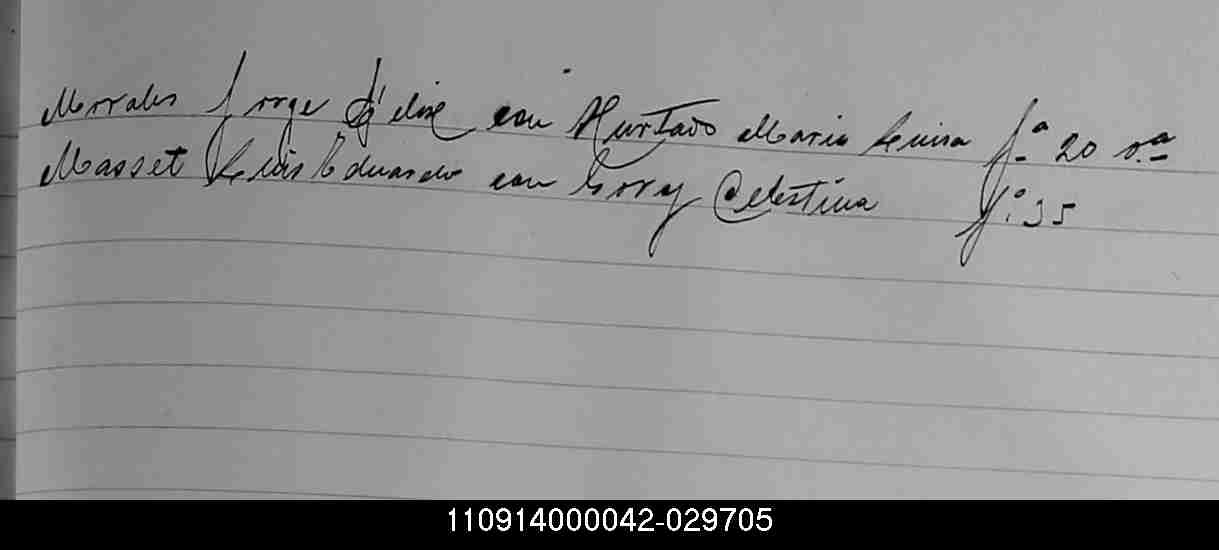 Morales Jorge Félix con Hurtado Maria Luisa f.ª 20 v.ª
Masset Luis Eduardo con Gory Celestina f.º 35
110914000042-029705